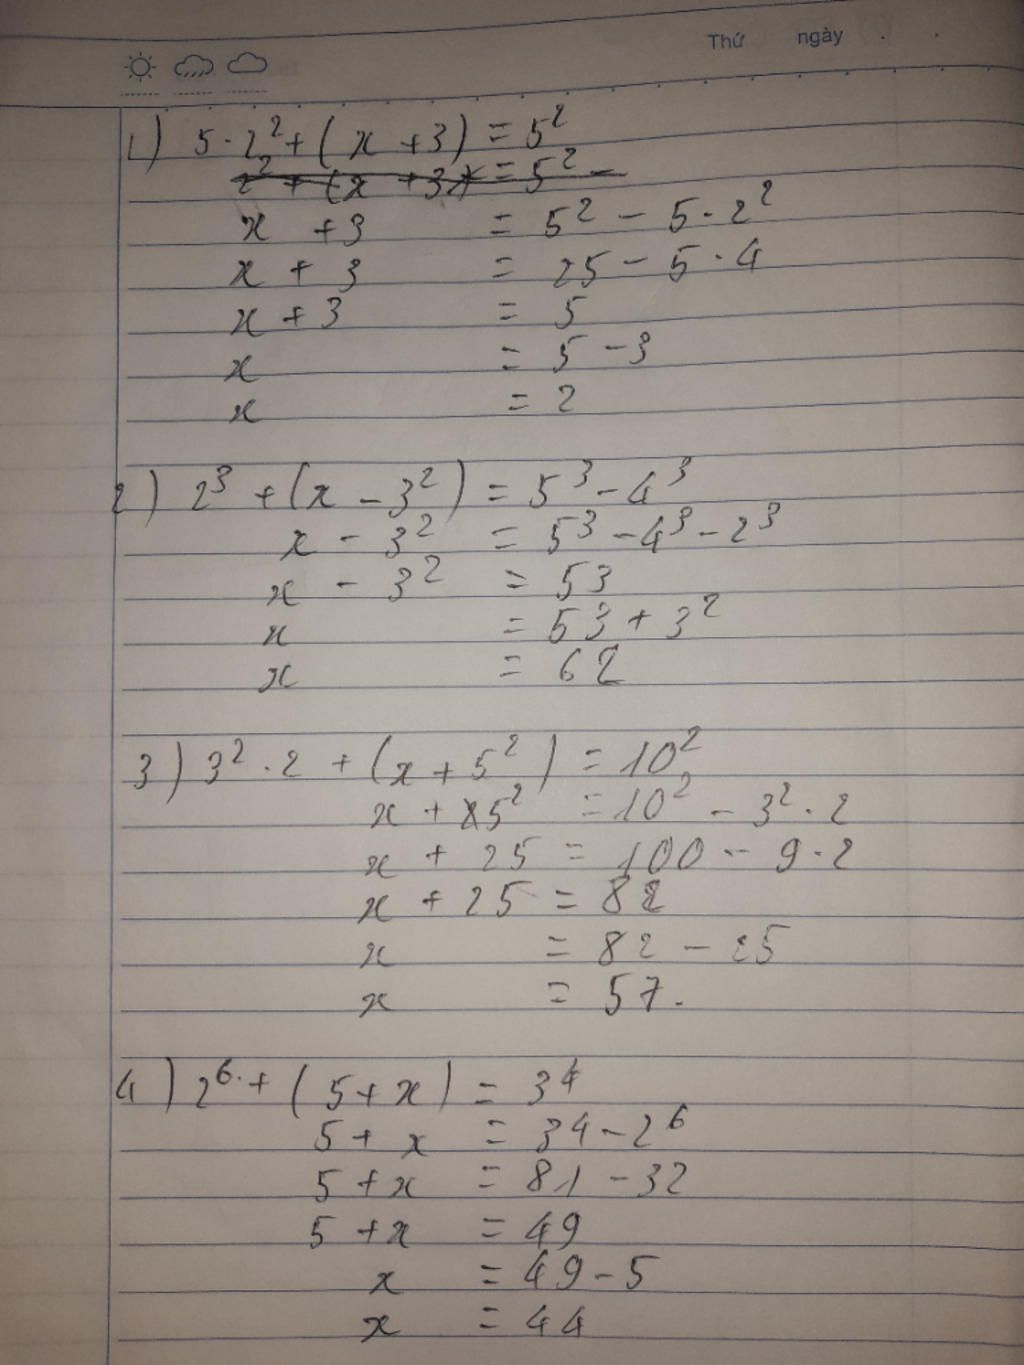 Thứ ngày
1) 5·2² + (x + 3) = 5²
2² + (x + 3) = 5² -
x + 3 = 5² - 5·2²
x + 3 = 25 - 5·4
x + 3 = 5
x = 5 - 3
x = 2
2) 2³ + (x - 3²) = 5³ - 4³
x - 3² = 5³ - 4³ - 2³
x - 3² = 53
x = 53 + 3²
x = 62
3) 3²·2 + (x + 5²) = 10²
x + 5² = 10² - 3²·2
x + 25 = 100 - 9·2
x + 25 = 82
x = 82 - 25
x = 57.
4) 2⁶· + (5 + x) = 3⁴
5 + x = 34 - 2⁶
5 + x = 81 - 32
5 + x = 49
x = 49 - 5
x = 44